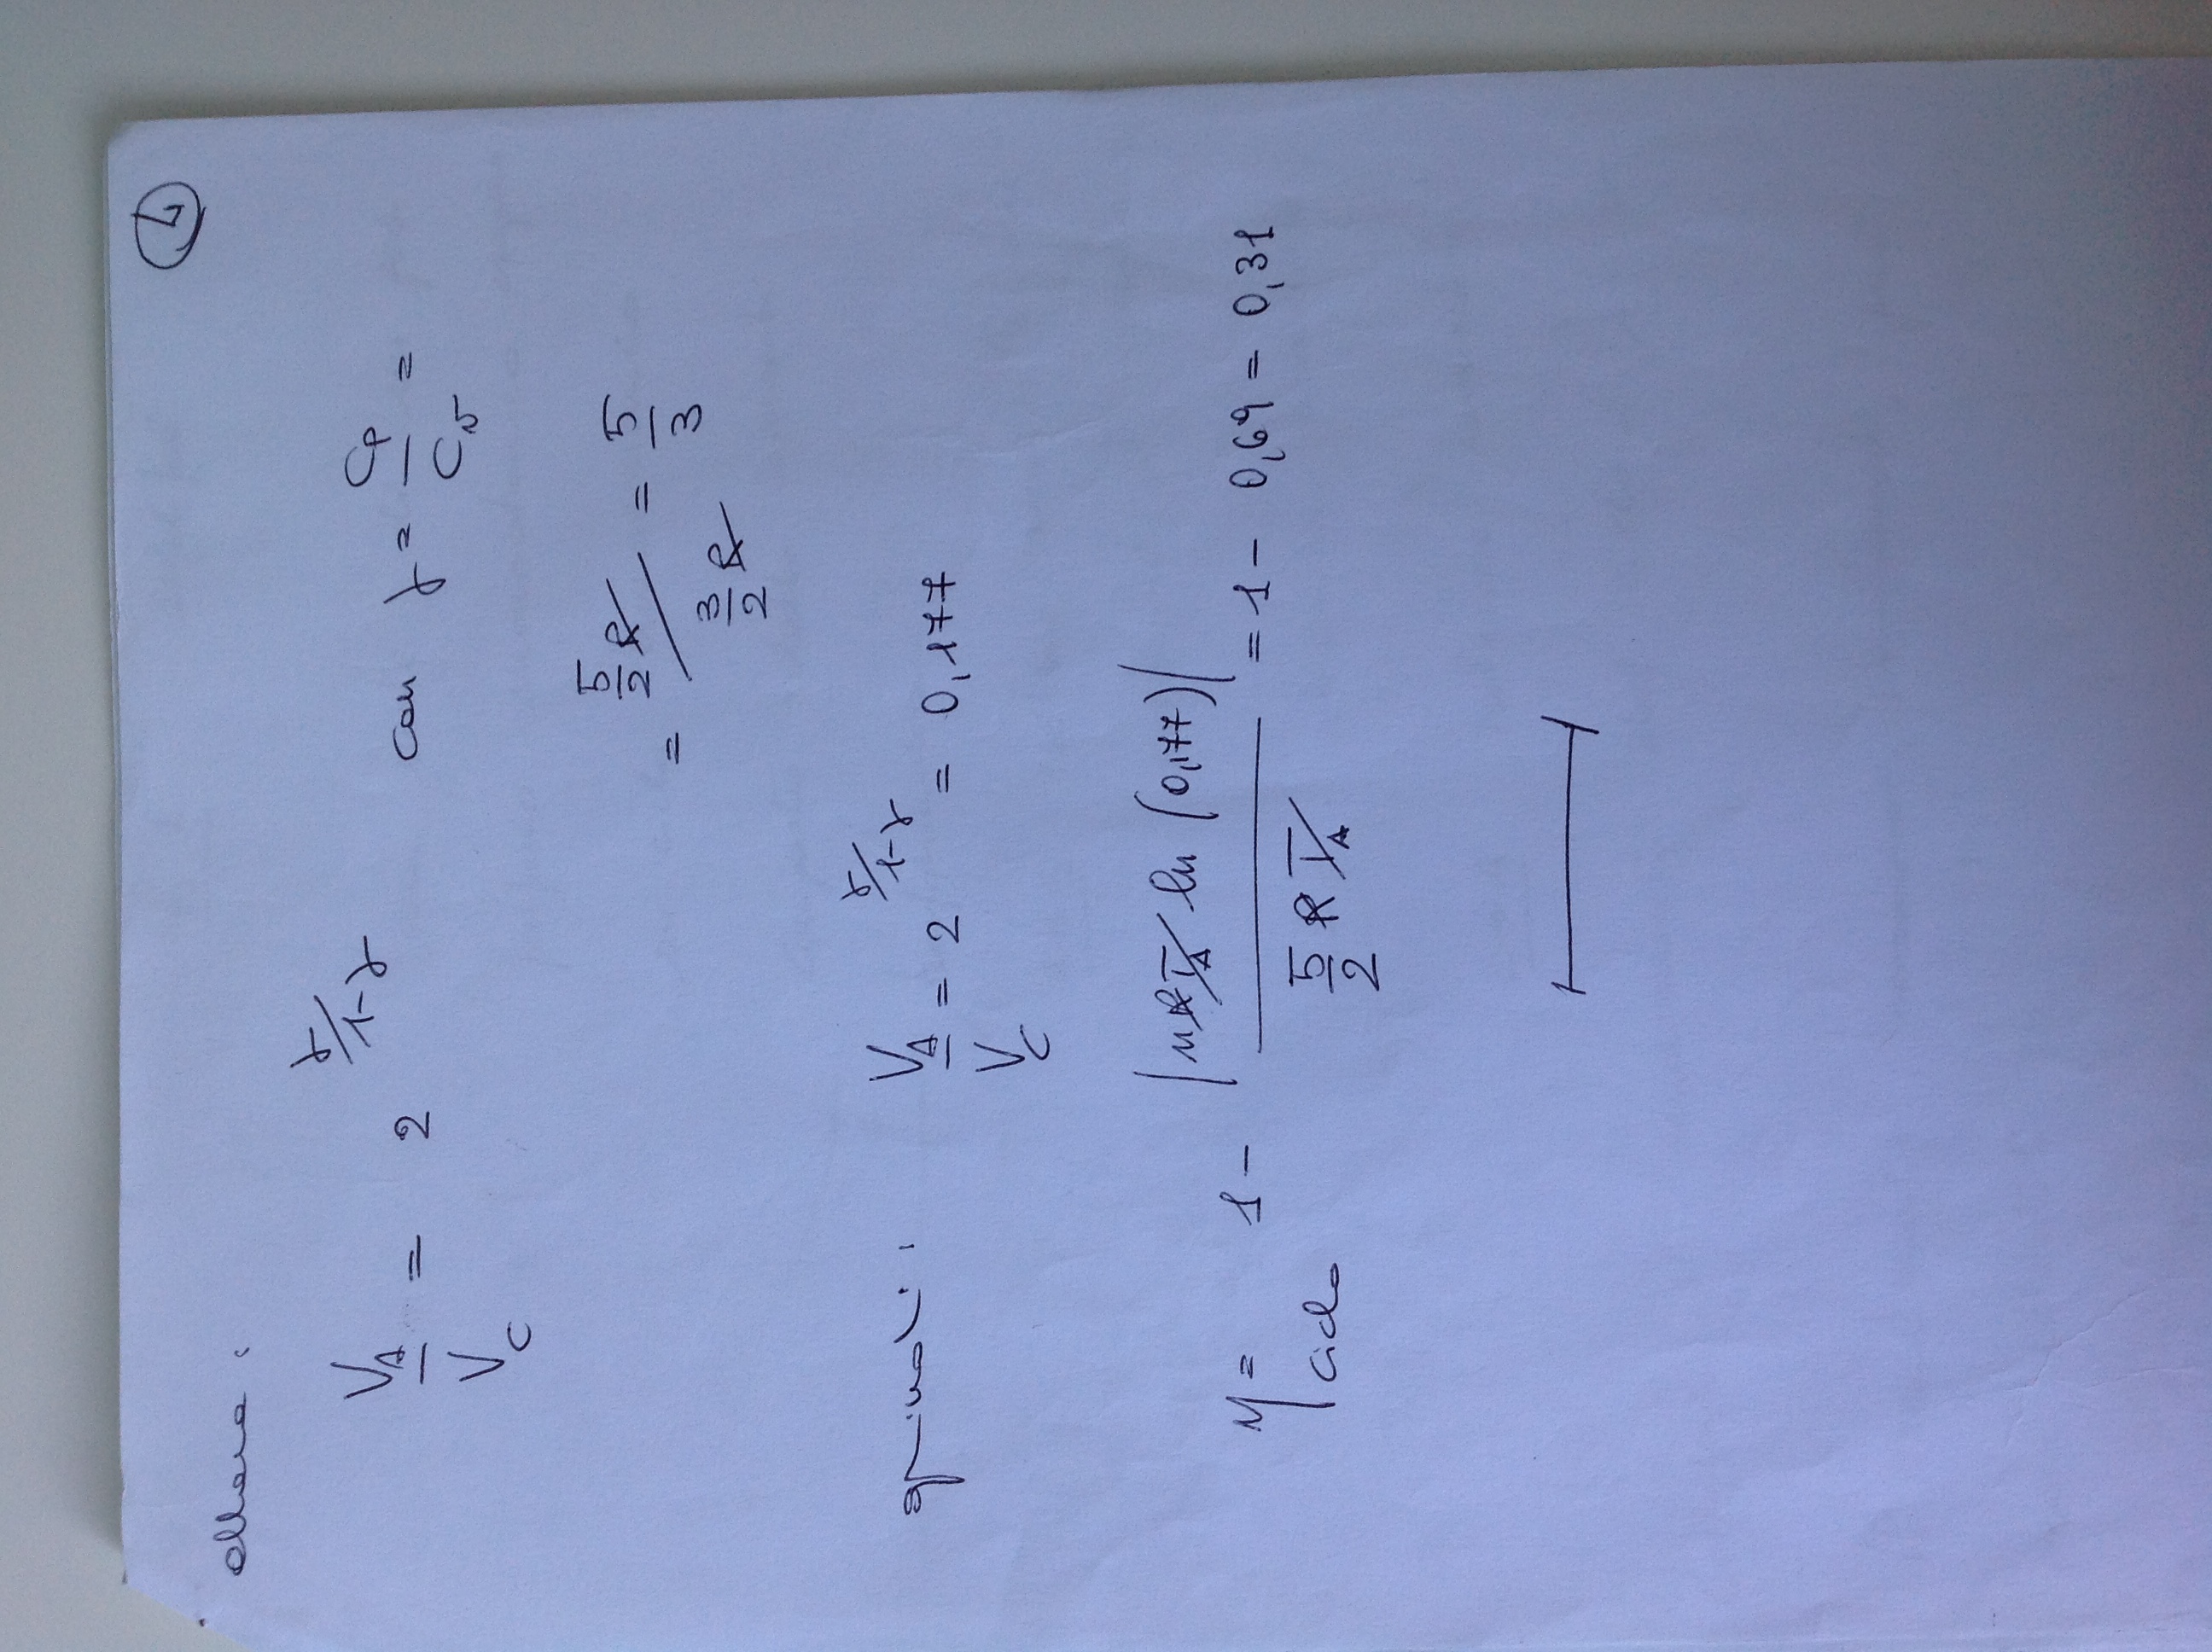 4
allora :
V_A / V_C = 2^(γ/1-γ) con γ = C_P / C_v =
= 5/2 R / 3/2 R = 5/3
quindi : V_A / V_C = 2^(γ/1-γ) = 0,177
η_ciclo = 1 - |nRT_A ln (0,177)| / 5/2 R T_A = 1 - 0,69 = 0,31